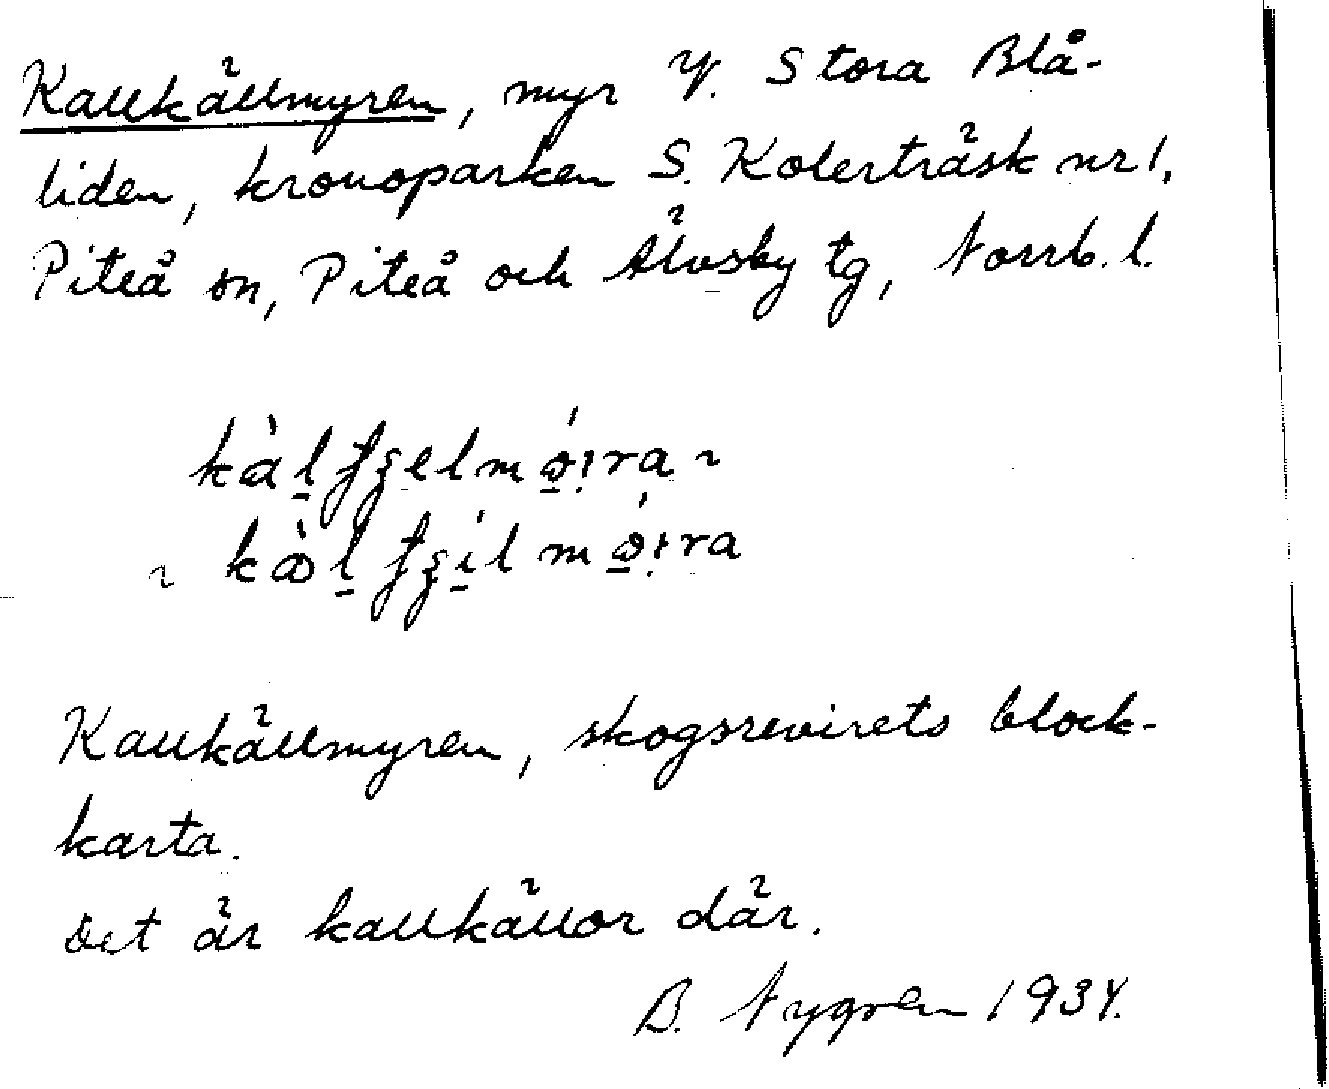 Kallkällmyren, myr V. Stora Blå-
liden, kronoparken S. Kolerträsk nr 1,
Piteå sn, Piteå och Älvsby tg, Norrb. l.
Kallkällmyren, skogsrevirets block-
karta.
Det är kallkällor där.
B. Nygren 1934.